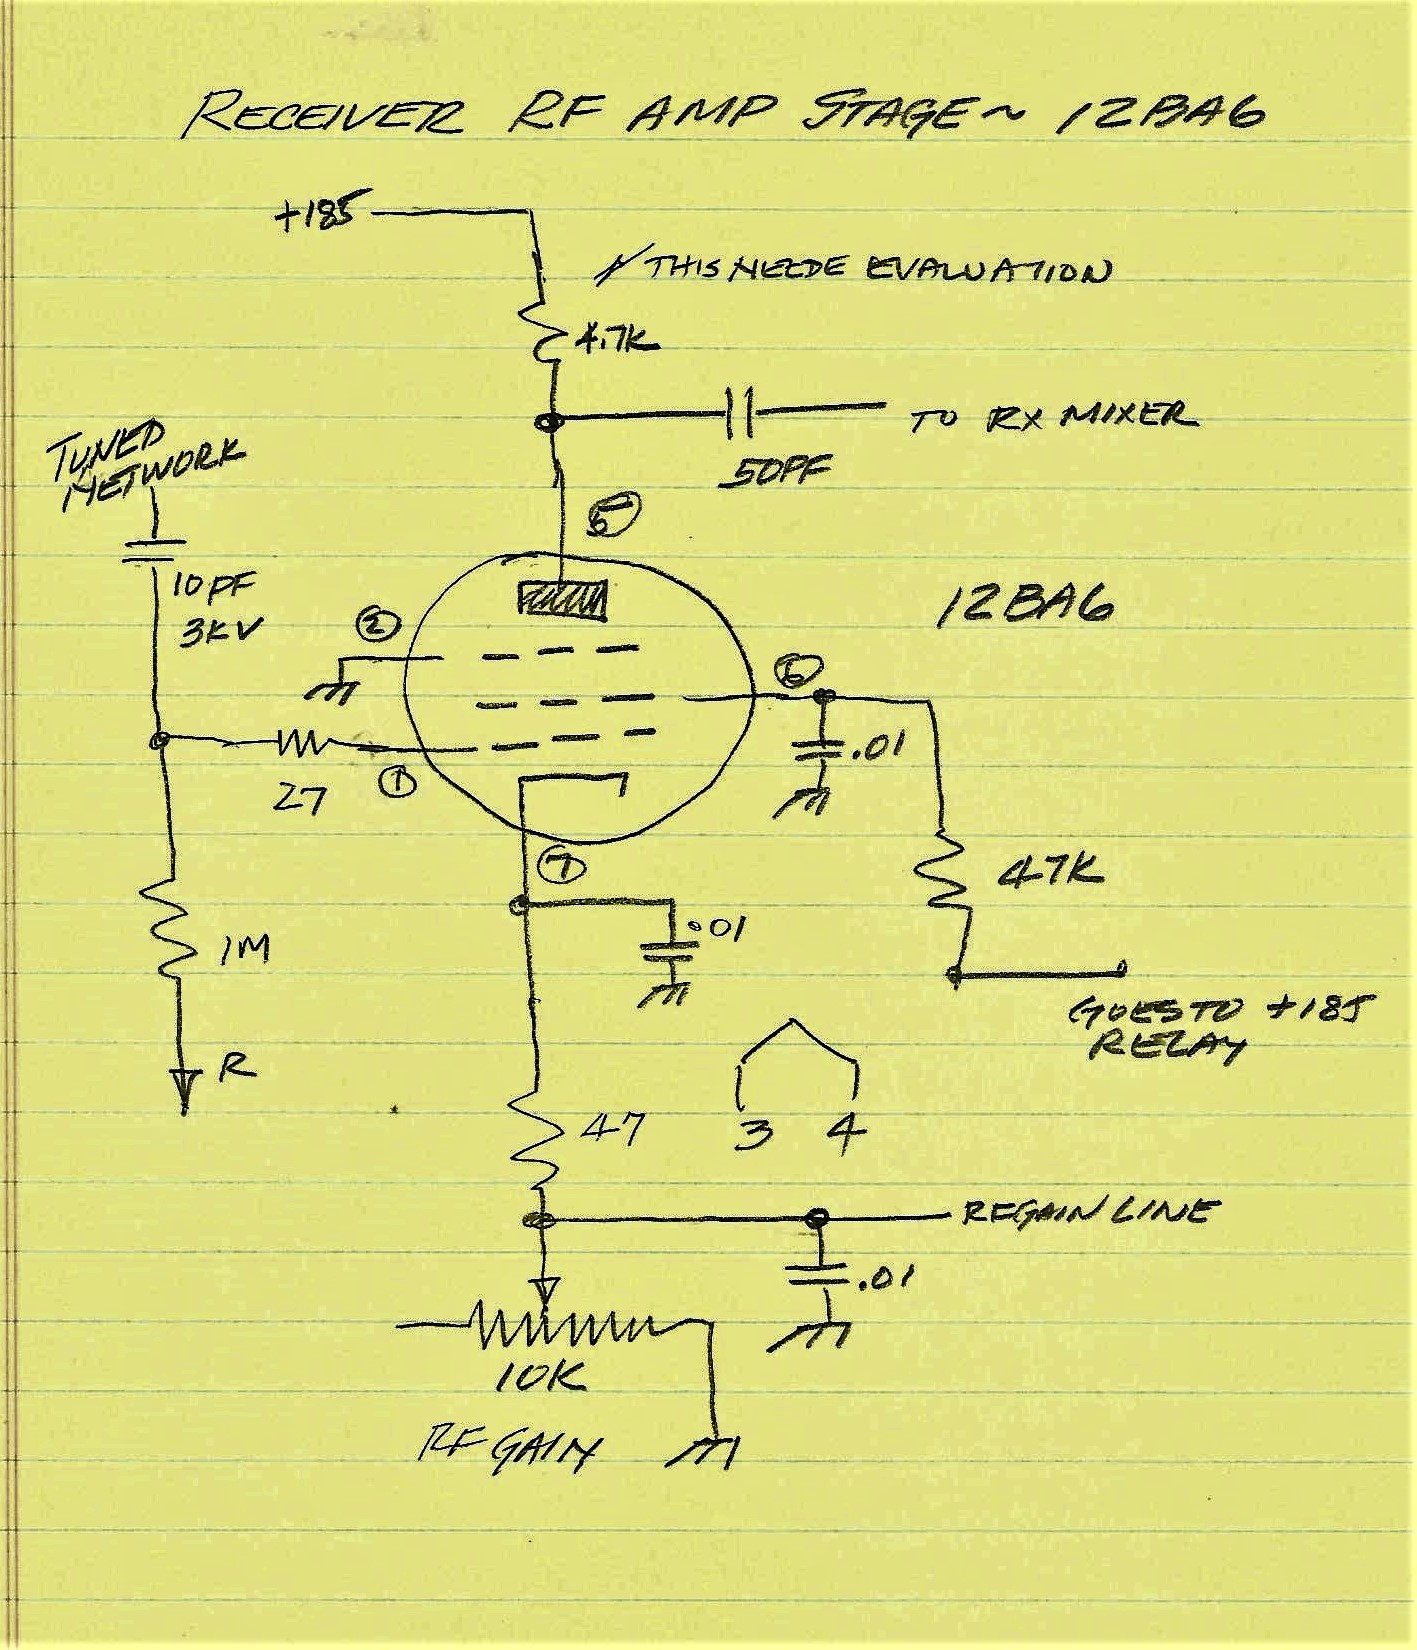 RECEIVER RF AMP STAGE ~ 12BA6
+185
THIS NEEDE EVALUATION
4.7K
TO RX MIXER
50PF
TUNED
NETWORK
5
10PF
3KV
2
12BA6
6
.01
27
1
7
47K
.01
1M
GOES TO +185
RELAY
R
3 4
47
RFGAIN LINE
.01
10K
RF GAIN